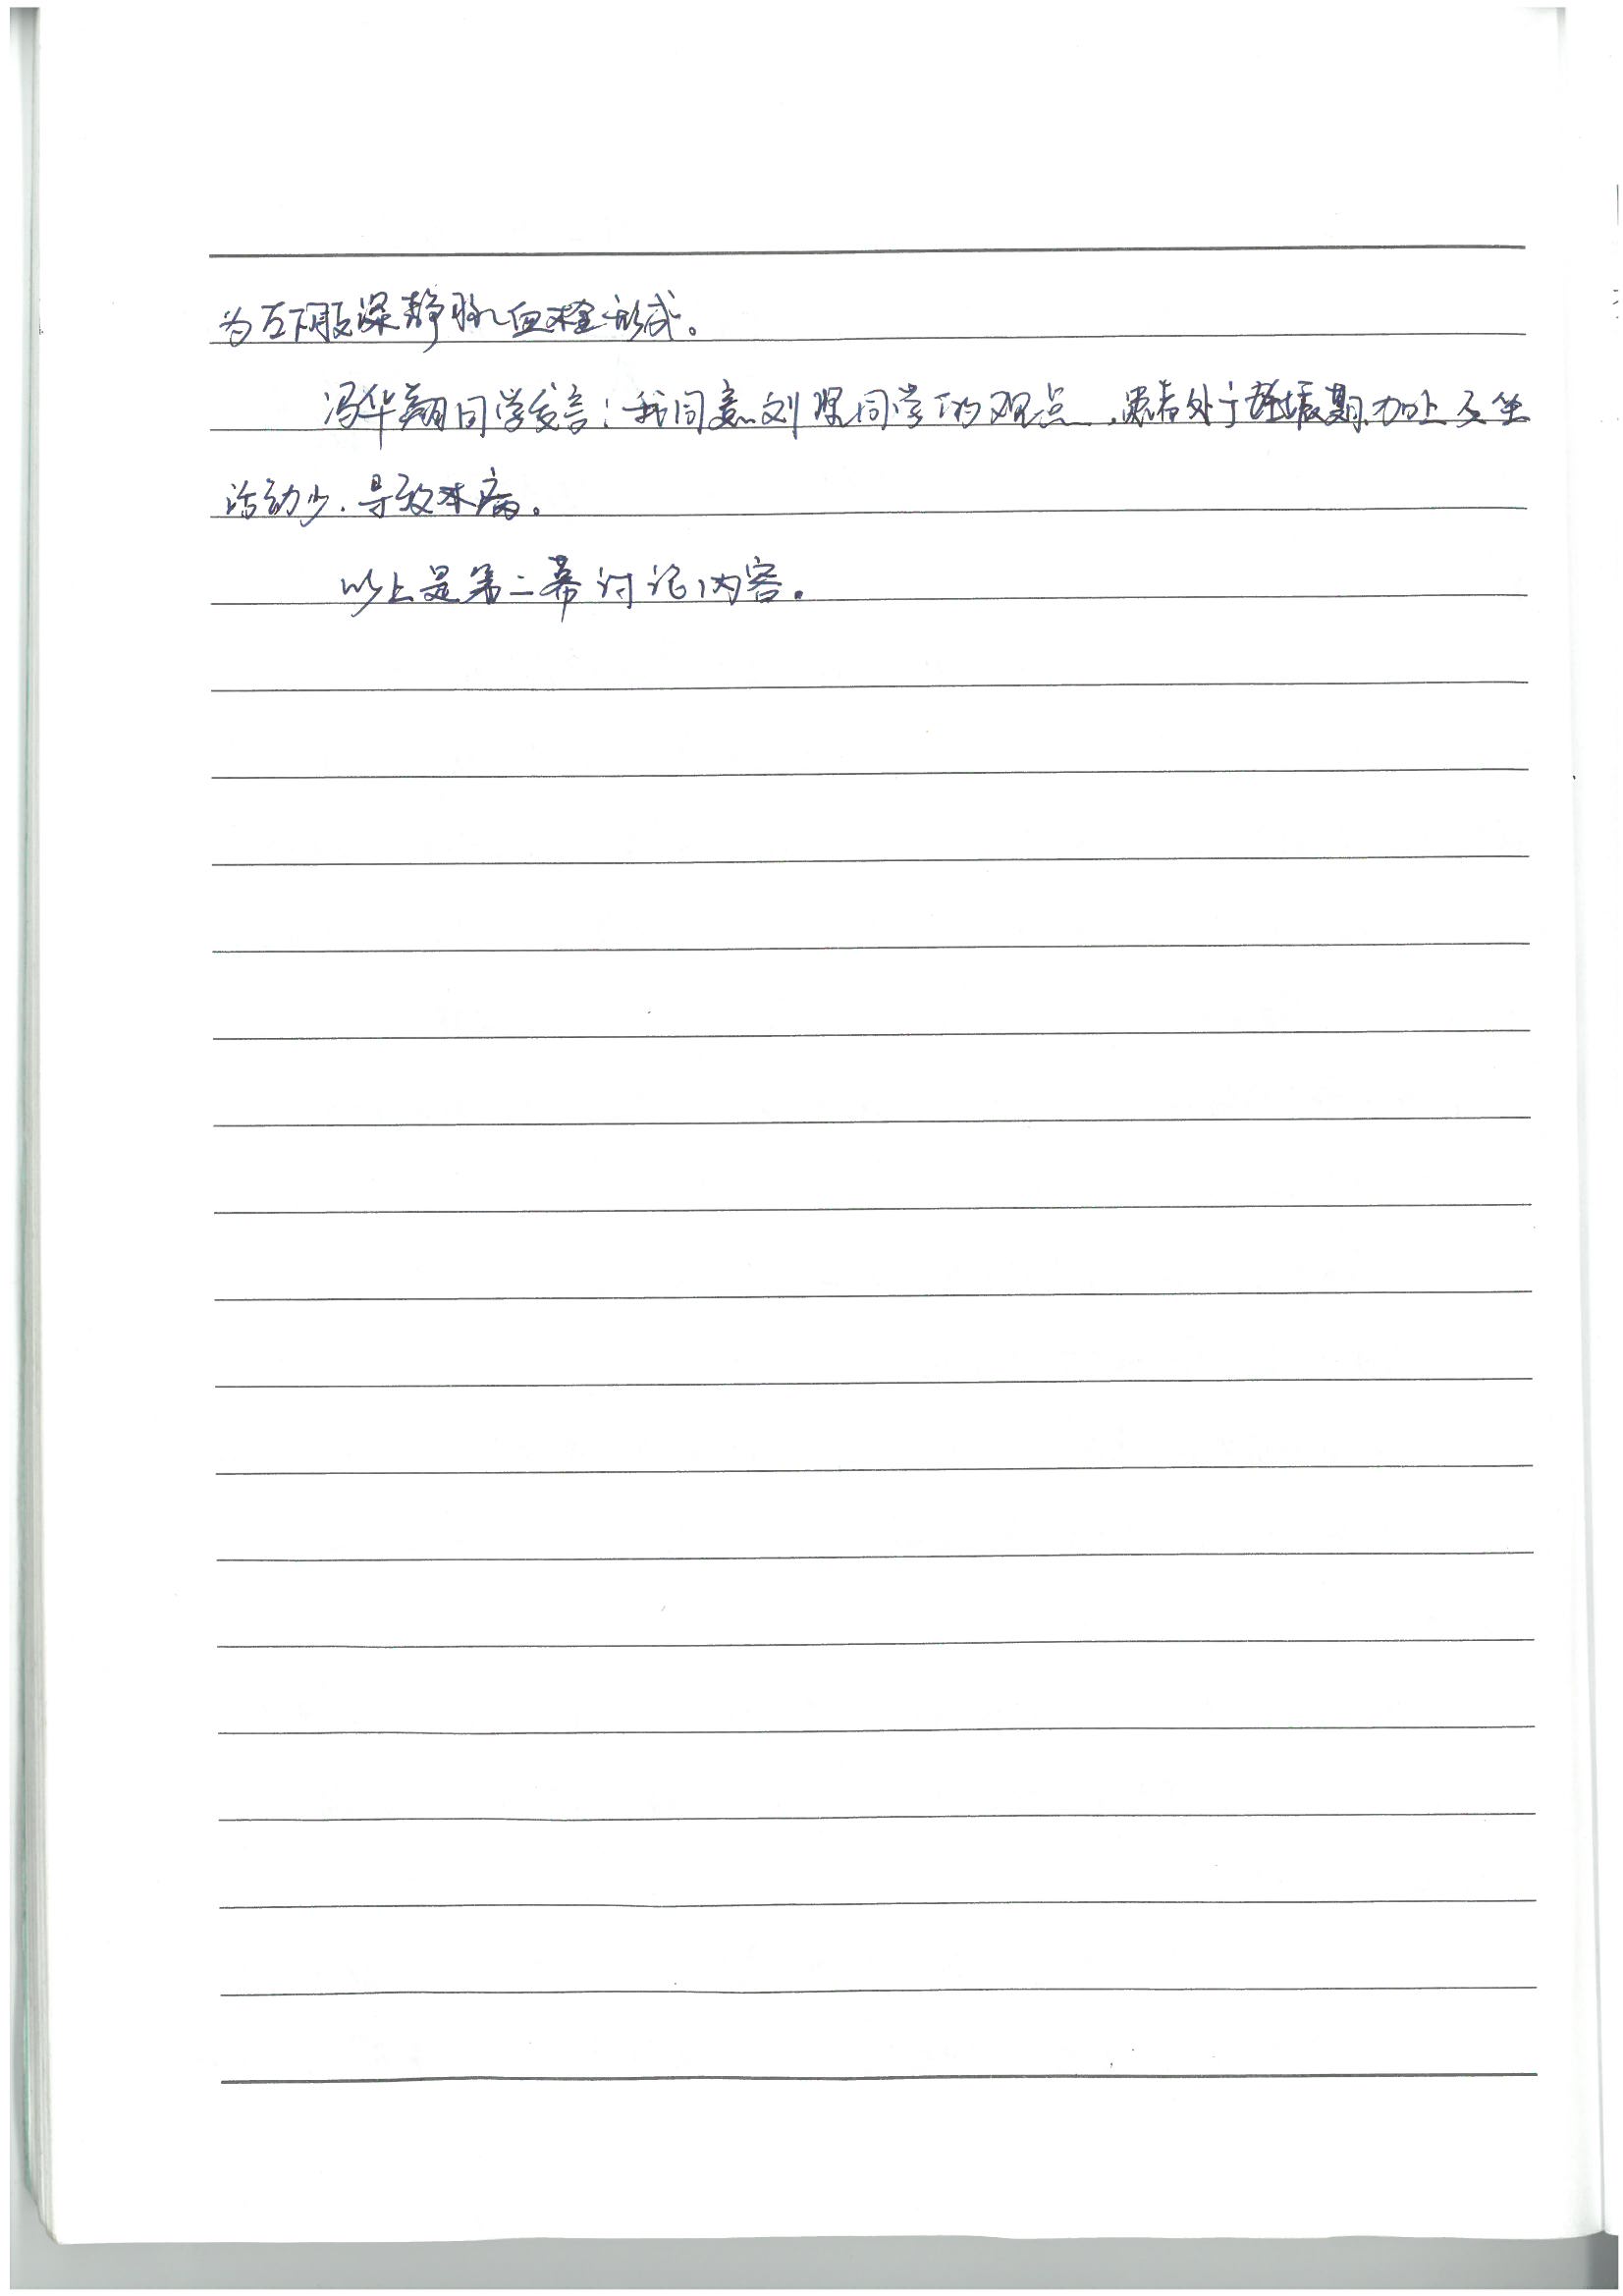 为左下肢深静脉血栓形成。
冯华翔同学发言：我同意刘同学的观点，患者处于妊娠期，加上久坐
活动少，导致本病。
以上是第二幕讨论内容。